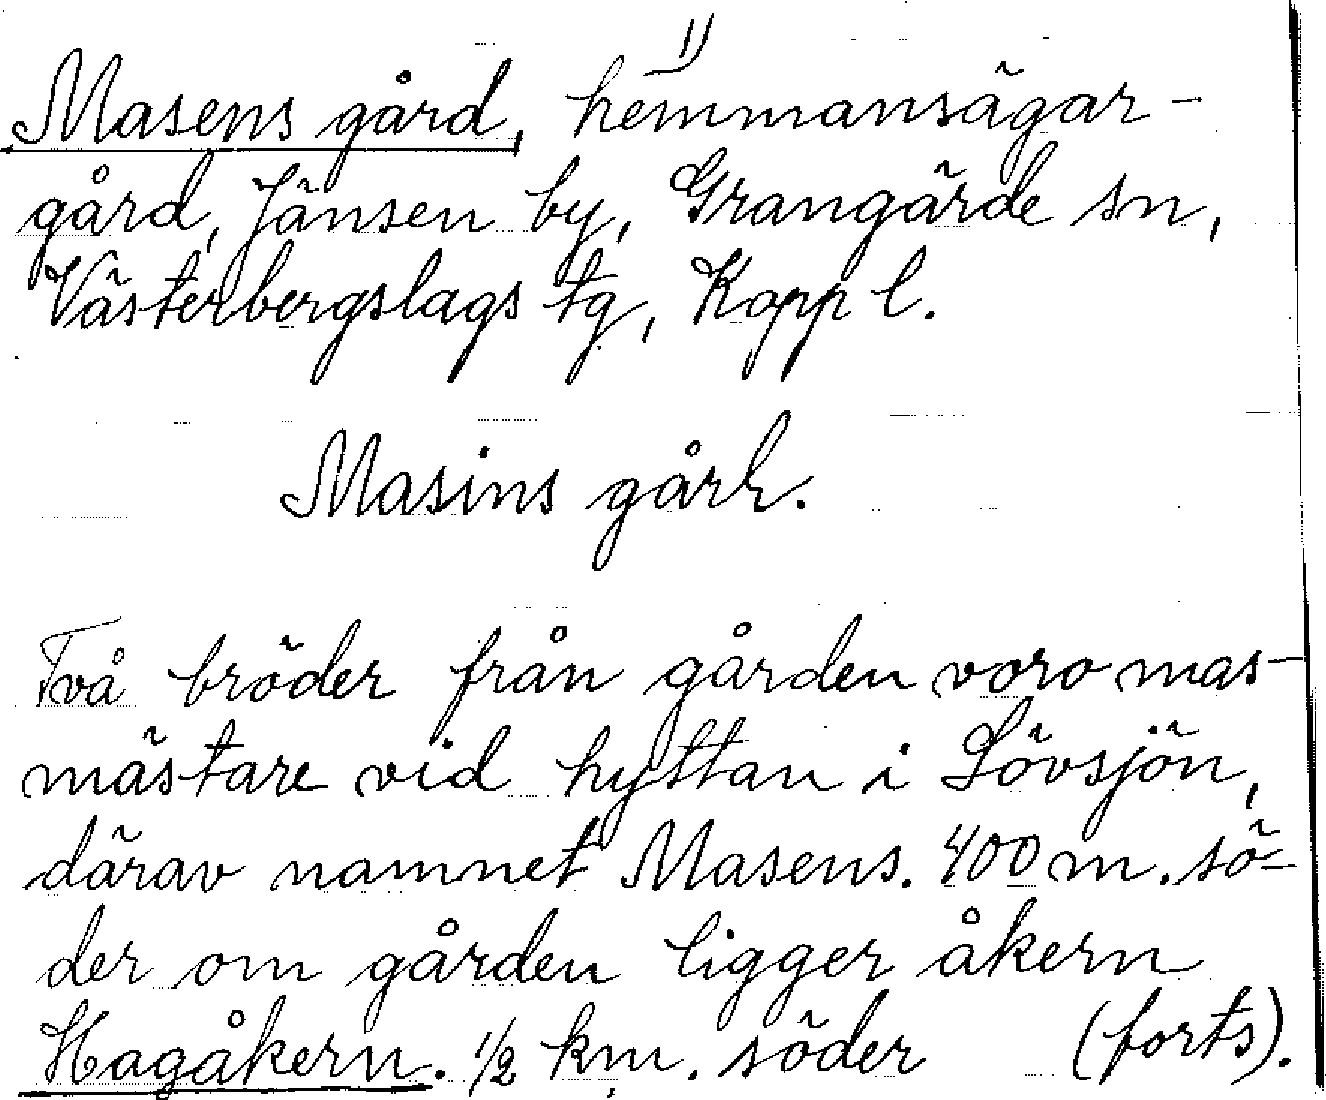 1)
Masens gård, hemmansägar-
gård, Jänsen by, Grangärde sn,
Västerbergslags tg, Kopp l.
Masins gårk.
Två bröder från gården voro mas-
mästare vid hyttan i Lövsjön,
därav namnet Masens. 400 m. sö-
der om gården ligger åkern
Hagåkern. 1/2 km. söder (forts).